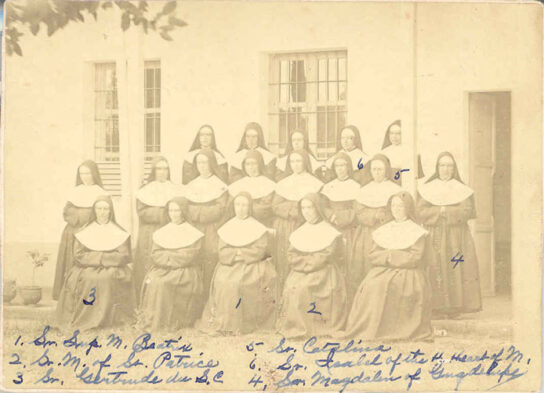 6
5
4
3
1
2
1. Sr. Sup. M. Beatrix
2. Sr. M. of St. Patrice
3 Sr. Gertrude du S.C
5 Sr. Catalina
6. Sr. Isabel of the H. Heart of M.
4, Sor Magdalen of Guadelupe